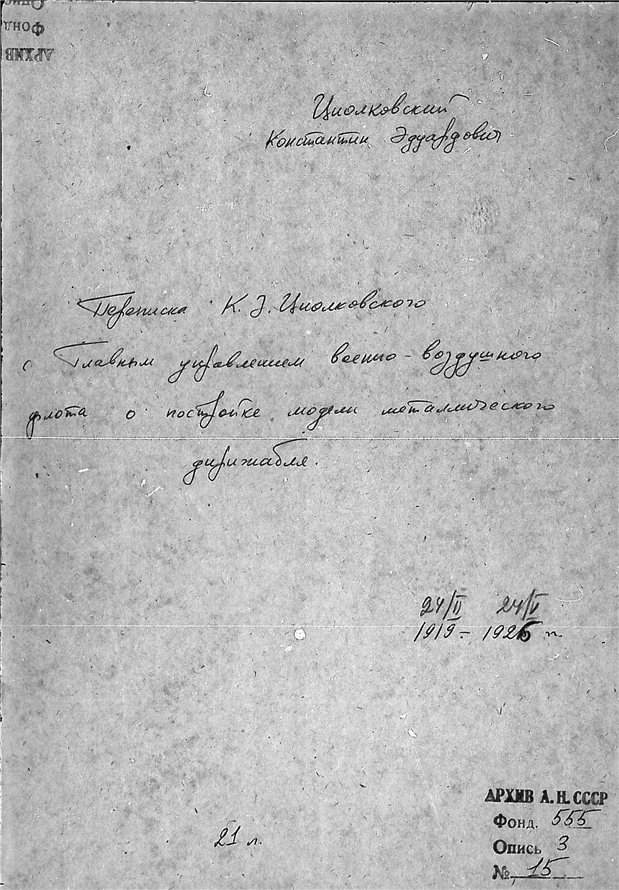 Опись
Фонд
АРХИВ
Циолковский
Константин Эдуардович
Переписка К.Э. Циолковского
с Главным управлением военно-воздушного
флота о постройке модели металлического
дирижабля.
24/II 24/V
1919 - 1926 гг.
21 л.
АРХИВ А.Н. СССР
Фонд. 555
Опись 3
№ 15